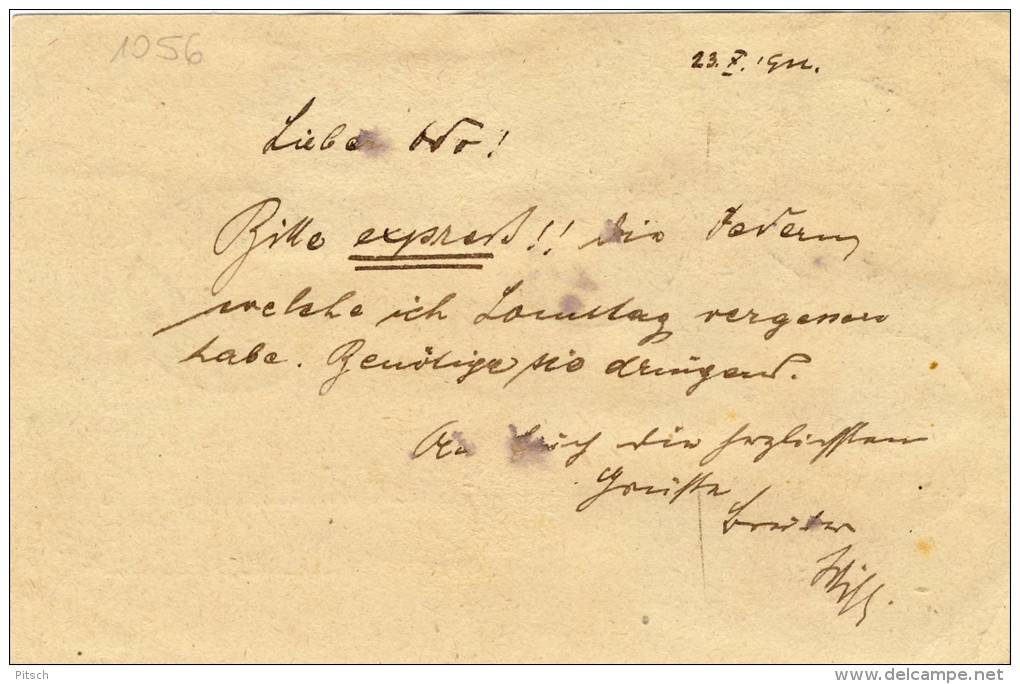 1056
23. X. 1911.
Lieber Odo!
Bitte expreß!! die Federn
welche ich Samstag vergessen
habe. Benötige sie dringend.
Euch die herzlichsten
Grüße
Bruder
Willy.
Pitsch
http://www.delcampe.net